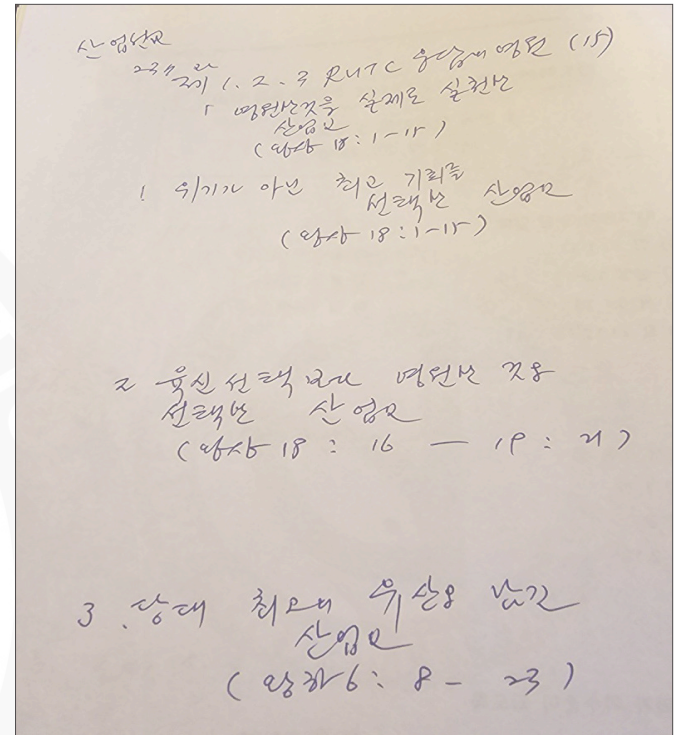 산업선교
23과 제 1. 2. 3 RUTC 응답의 영원 (15)
영원한것을 실제로 실천한
산업인
(왕상 18:1-15)
1 위기가 아닌 최고 기회를
선택한 산업인
(왕상 18:1-15)
2 육신선택 보다 영원한 것을
선택한 산업인
(왕상 18:16 — 19:21)
3. 당대 최고의 유산을 남긴
산업인
(왕하 6:8-23)